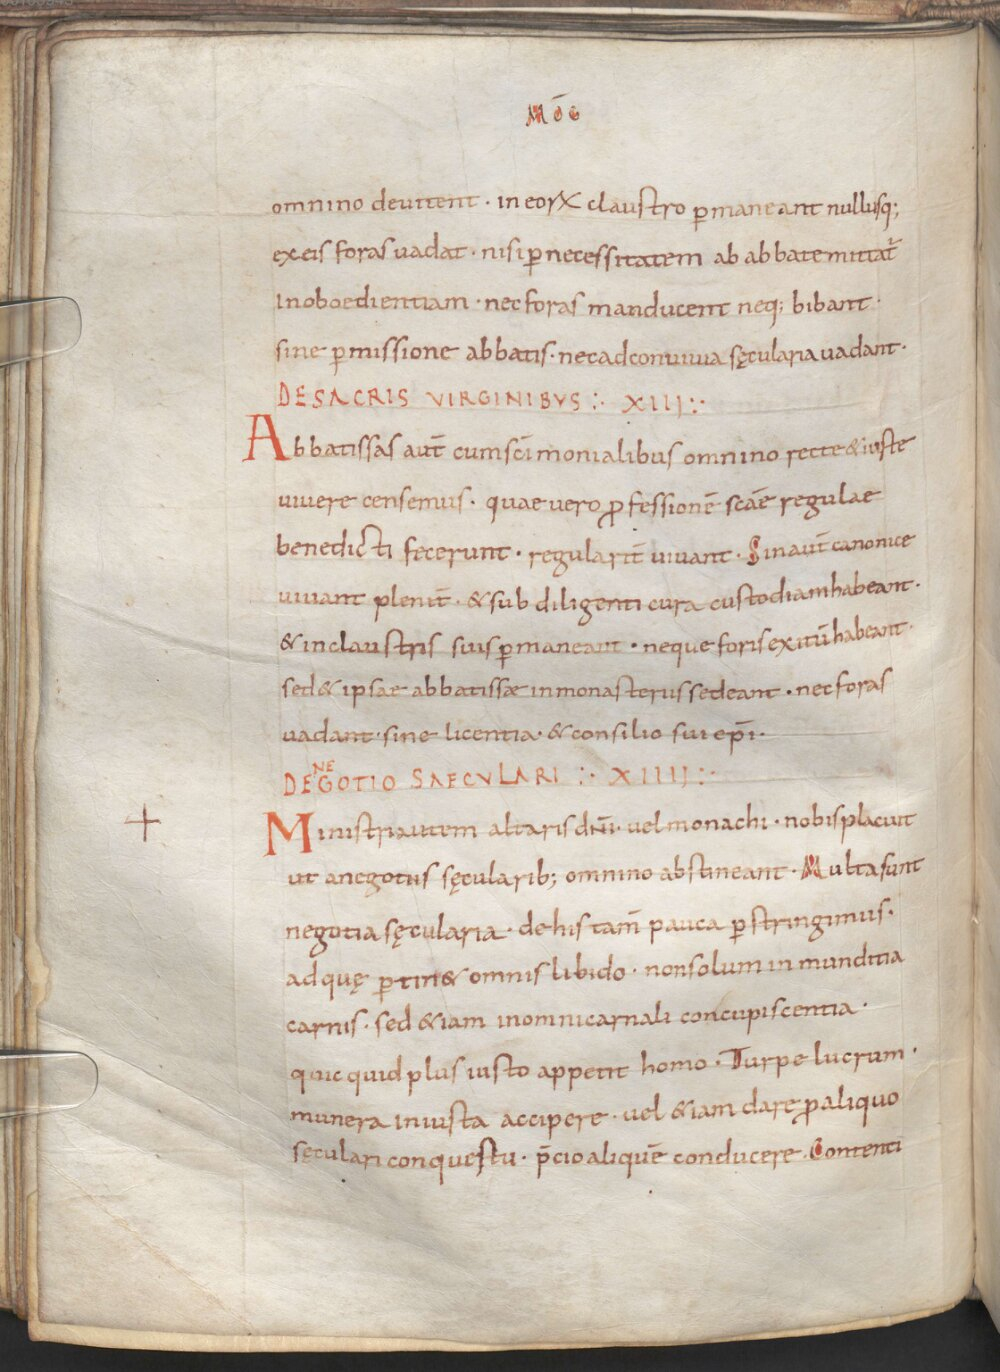 MōG
omnino deuitent · in eorꝝ claustro ꝑmaneant nullusq;
ex eis foras uadat · nisi ꝑ necessitatem ab abbate mittat̄
in oboedientiam · nec foras manducent neq; bibant ·
sine ꝑmissione abbatis · nec ad conuiuia sęcularia uadant ·
DE SACRIS VIRGINIBVS ∴ XIII ∴
Abbatissas aut̄ cum sc̄imonialibus omnino recte & iuste
uiuere censemus · quae uero ꝓfessionē scāe regulae
benedicti fecerunt · regularit̄ uiuant · Sin aut̄ canonice
uiuant plenit̄ · & sub diligenti cura custodiam habeant ·
& in claustris suis ꝑmaneant · neque foris exitū habeant ·
sed & ipsae abbatissæ in monasteriis sedeant · nec foras
uadant · sine licentia · & consilio sui ep̄i ·
DE NEGOTIO SAECVLARI ∴ XIIII ∴
Ministri autem altaris dn̄i · uel monachi · nobis placuit
ut a negotiis sęcularib; omnino abstineant · Multa sunt
negotia sęcularia · de his tam̄ pauca ꝑstringimus ·
ad quę ꝑtin& omnis libido · non solum in munditia
carnis · sed &iam in omni carnali concupiscentia ·
quicquid plus iusto appetit homo · Turpe lucrum ·
munera iniusta accipere · uel &iam dare ꝓ aliquo
sęculari conquestu · p̄cio aliquē conducere · Contenti